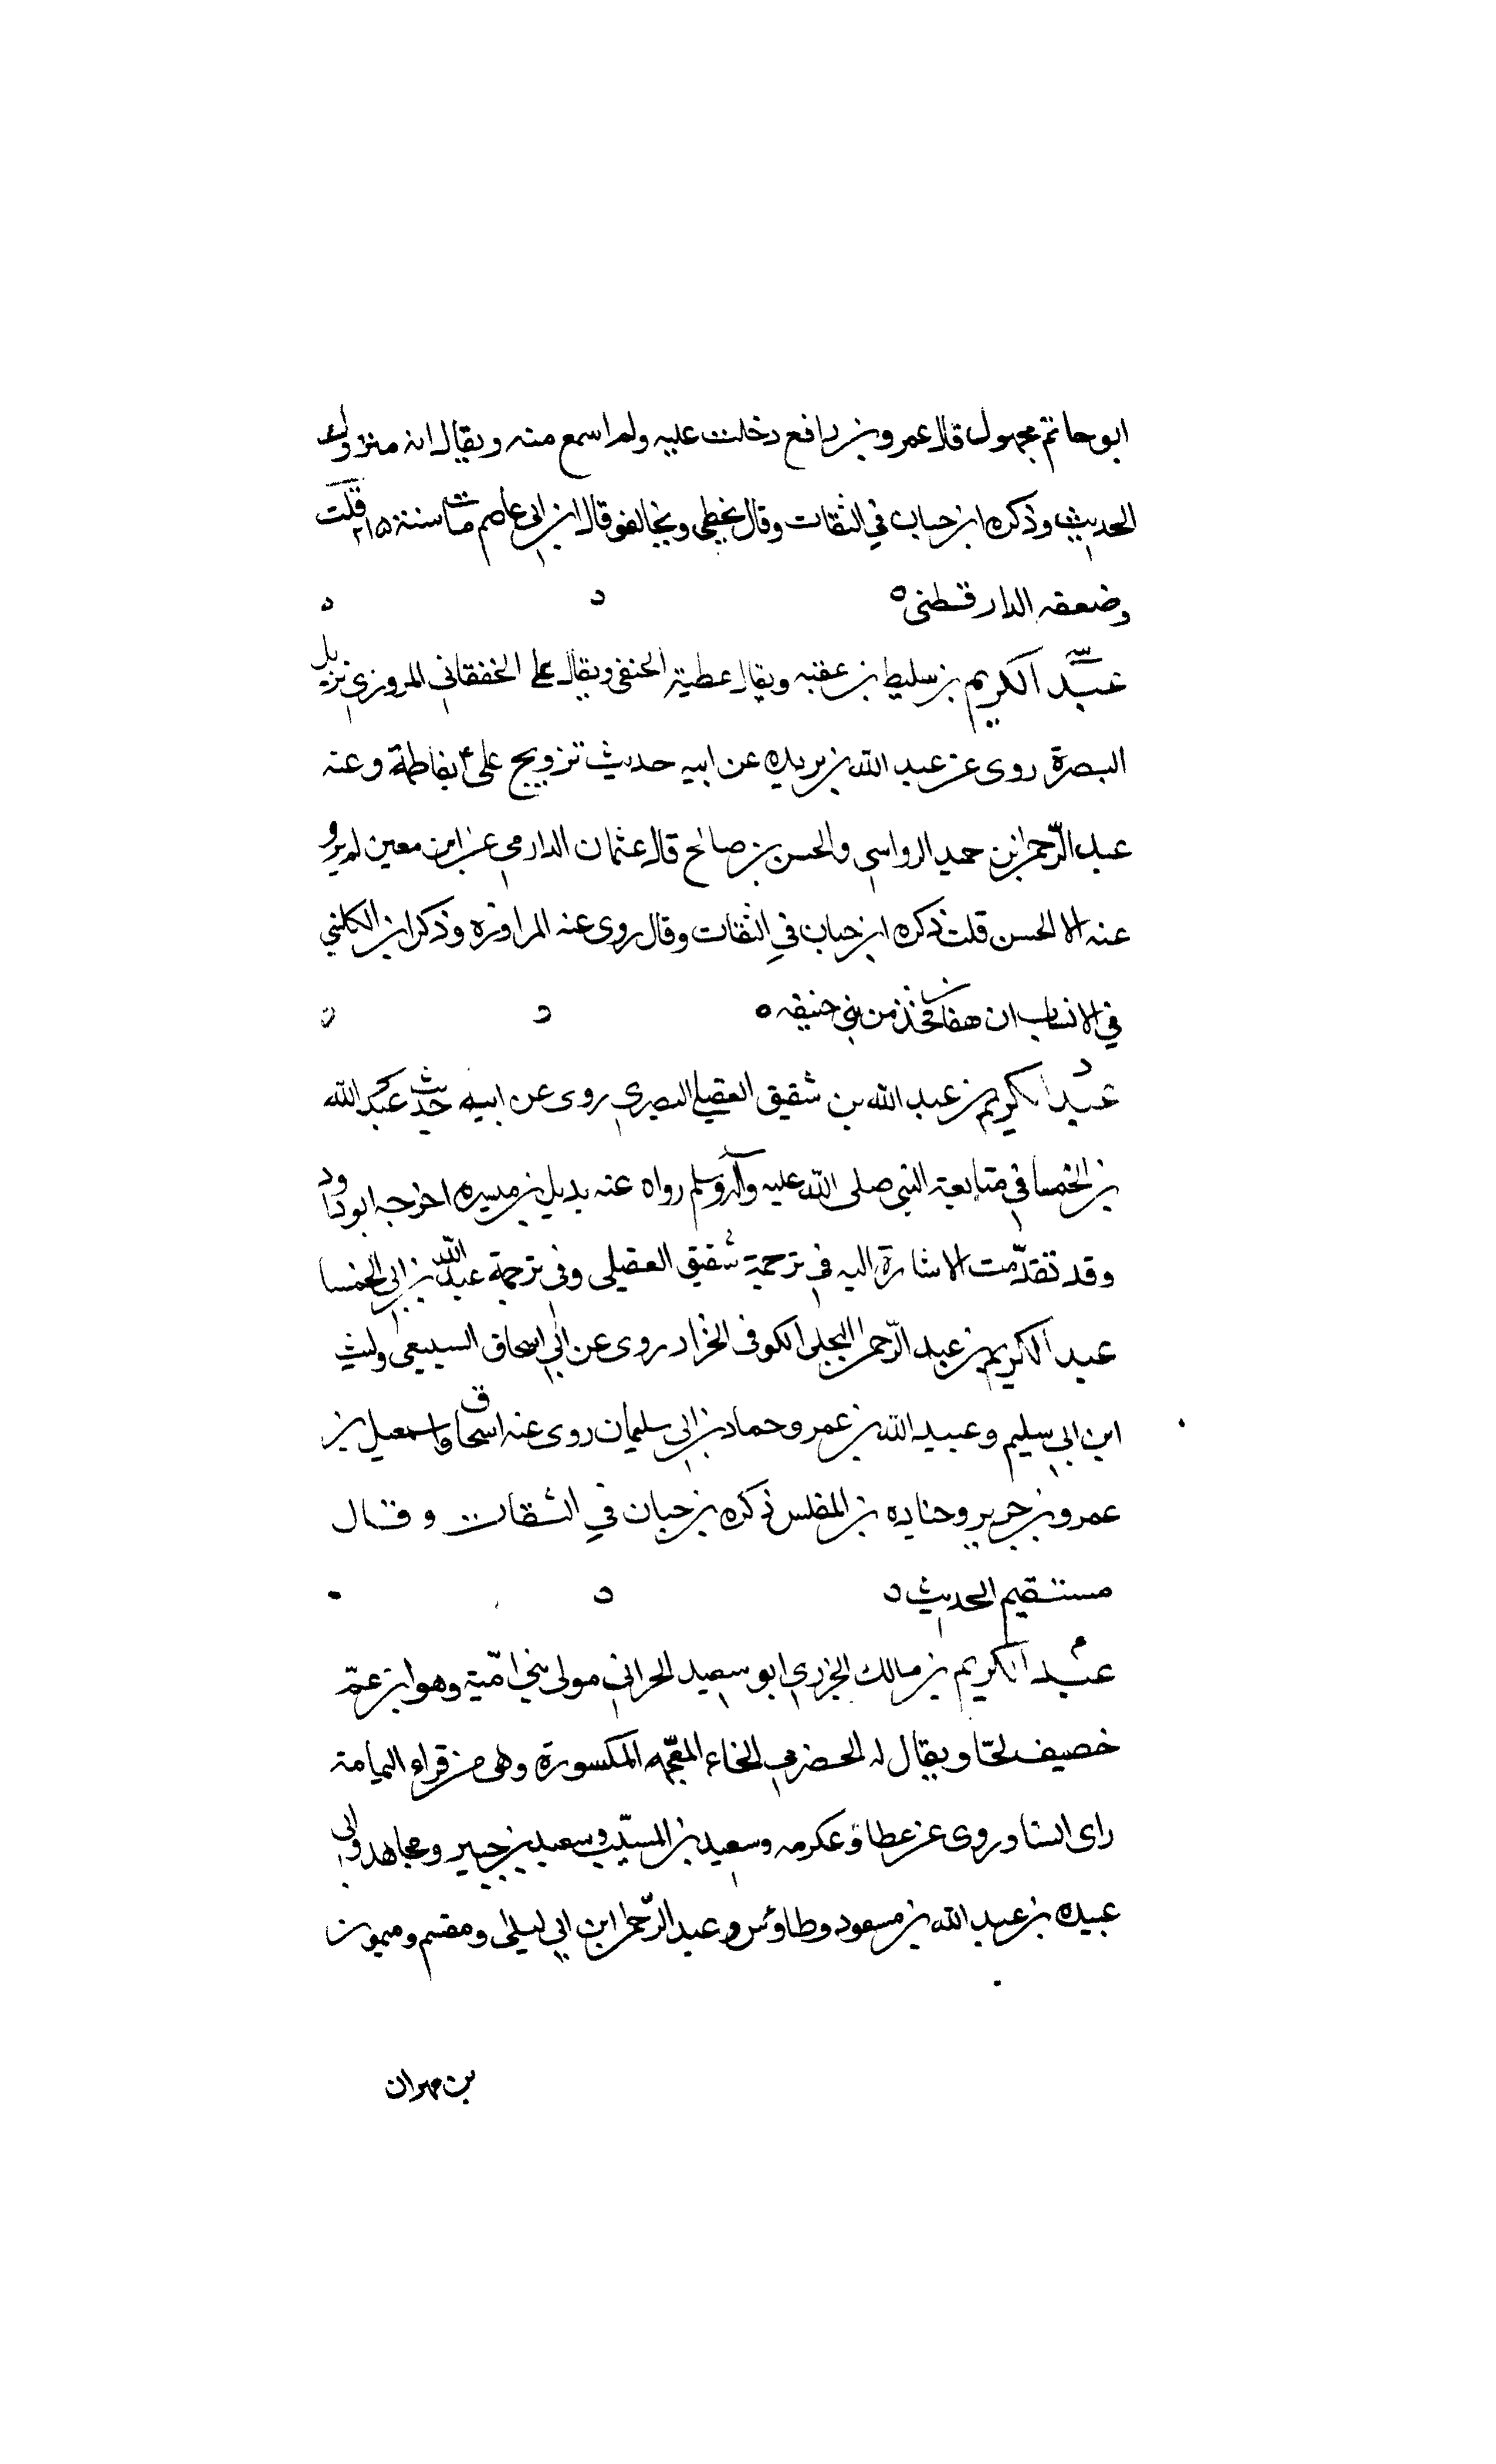 ابو حاتم مجهول قال عمرو بن رافع دخلت عليه ولم اسمع منه ويقال انه متروك
الحديث وذكره ابن حبان في الثقات وقال يخطي ويخالف وقال ابن ابي عاصم مات سنة ٢١٥ قلت
وضعفه الدارقطنى ه
عبد الكريم بن سليط بن عقبه ويقال عطية الحنفى ويقال على الخفقاني المروزي نزيل
البصرة روى عن عبد الله بن بريده عن ابيه حديث تزويج على بفاطمة وعنه
عبد الرّحمن ابن حميد الرواسي والحسن بن صالح قال عثمان الدارمي عن ابن معين لم يرو
عنه الا الحسن قلت ذكره ابن حبان في الثقات وقال روى عنه المراوزة وذكر ابن الكلبي
في الانساب ان هفان فخذ من بني حنيفه ه
عبد الكريم بن عبد الله بن شقيق العقيلي البصري روى عن ابيه حديث عبد الله
بن الخمسا في متابعة النبي صلى الله عليه وآله وسلم رواه عنه بديل بن ميسره اخرجه ابو داود
وقد تقدّمت الاشارة اليه في ترجمة شقيق العقيلى وفى ترجمة عبد الله بن ابي الخمسا
عبد الكريم بن عبد الرّحمن البجلى الكوفى الخزاز روى عن ابي اسحاق السبيعى وليث
ابن ابي سليم وعبيد الله بن عمر وحماد بن ابي سليمان روى عنه اسحاق واسمعيل بن
عمرو بن جرير وجناده بن المفلس ذكره بن حبان في الثقات وقال
مستقيم الحديث ه
عبد الكريم بن مالك الجزري ابو سعيد الحراني مولى بني اميّة وهو ابن عمّ
خصيف لحّا ويقال له الحضرمي الخاء المعجّمه المكسورة وهى من قراء اليمامة
راى انسا وروى عن عطا وعكرمه وسعيد بن المسيّب وسعيد بن جبير ومجاهد وابي
عبيده بن عبد الله بن مسعود وطاوس وعبد الرّحمن ابن ابي ليلى ومقسم وميمون
بن مهران